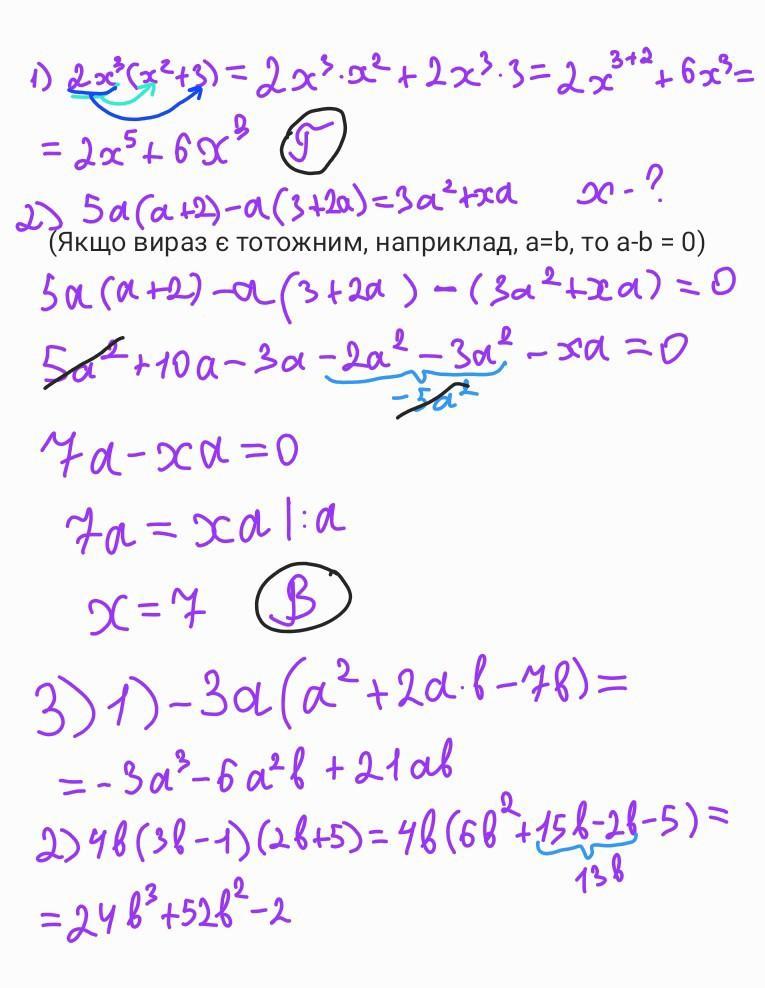 1) 2x³(x²+3) = 2x³·x² + 2x³·3 = 2x³⁺² + 6x³ =
= 2x⁵ + 6x³ Г
2) 5a(a+2)-a(3+2a)=3a²+xa x - ?
(Якщо вираз є тотожним, наприклад, a=b, то a-b = 0)
5a(a+2)-a(3+2a) - (3a²+xa) = 0
5a² +10a - 3a - 2a² - 3a² - xa = 0
-5a²
7a - xa = 0
7a = xa |:a
x = 7 В
3) 1) -3a(a²+2a·b-7b) =
= -3a³ - 6a²b + 21ab
2) 4b(3b-1)(2b+5) = 4b(6b²+15b-2b-5) =
13b
= 24b³+52b²-2